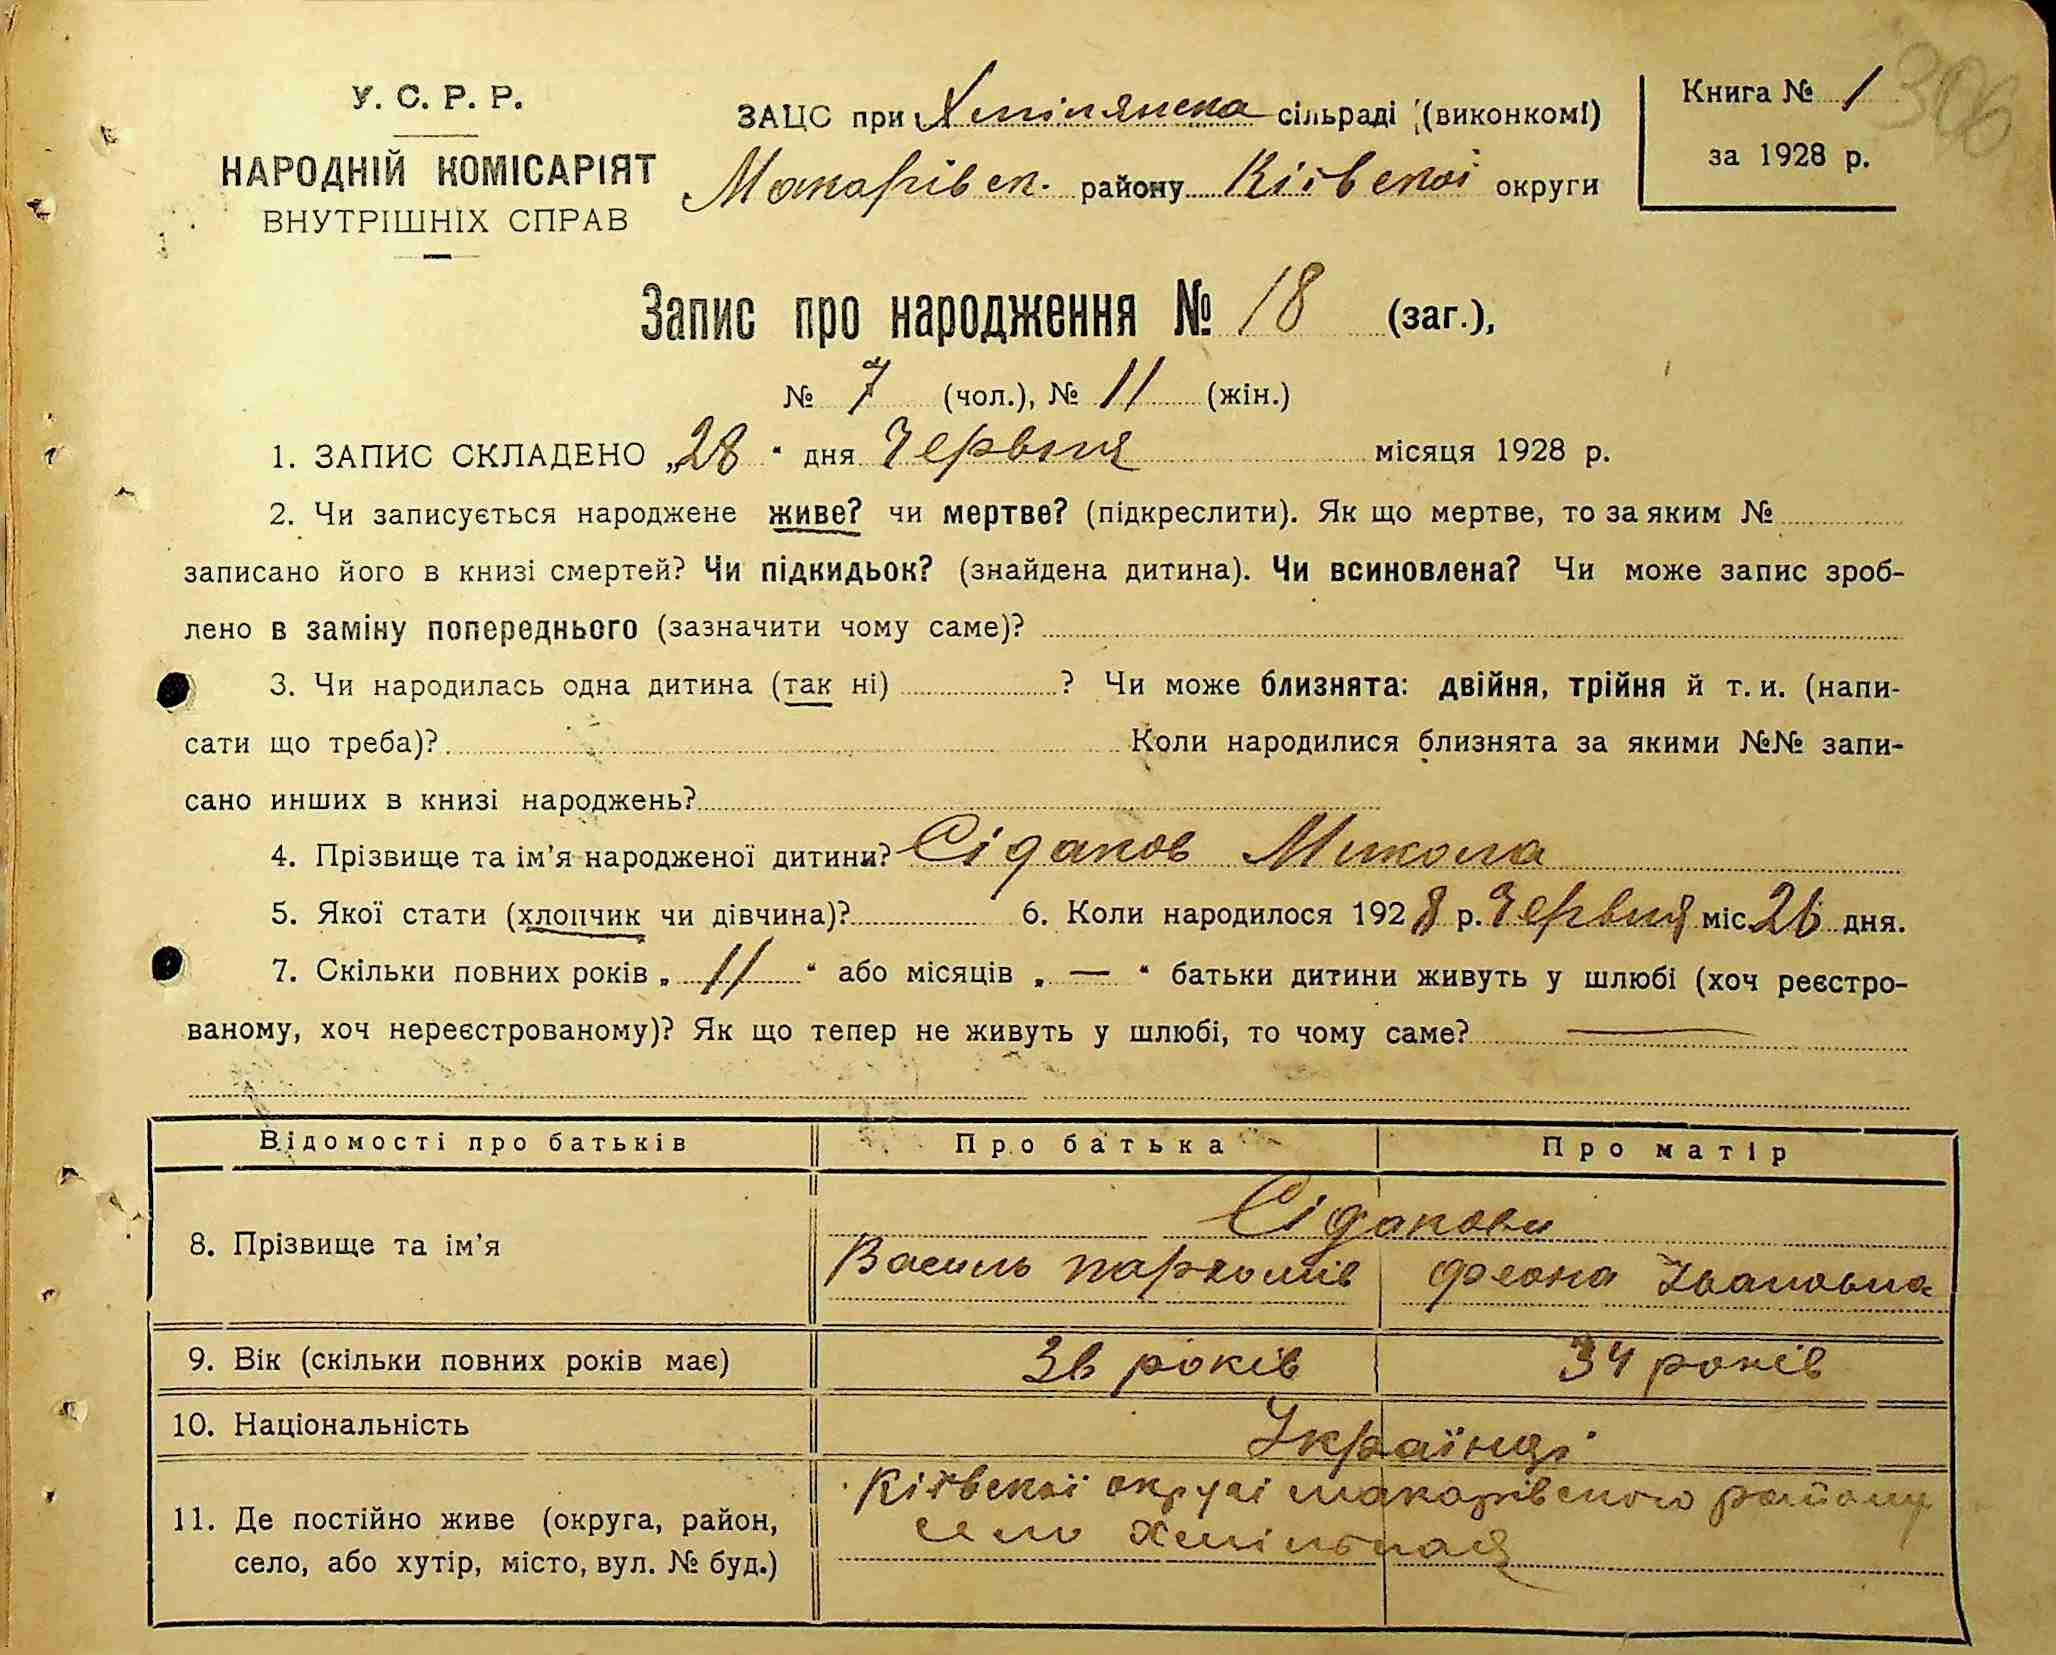 У. С. Р. Р.
НАРОДНІЙ КОМІСАРІЯТ
ВНУТРІШНІХ СПРАВ
ЗАЦС при Хмілянска сільраді (виконкомі)
Макарівск. району Кіівскоі округи
Книга № 1
за 1928 р.
306
Запис про народження № 18 (заг.),
№ 7 (чол.), № 11 (жін.)
1. ЗАПИС СКЛАДЕНО „28" дня Червня місяця 1928 р.
2. Чи записується народжене живе? чи мертве? (підкреслити). Як що мертве, то за яким №
записано його в книзі смертей? Чи підкидьок? (знайдена дитина). Чи всиновлена? Чи може запис зроб-
лено в заміну попереднього (зазначити чому саме)?
3. Чи народилась одна дитина (так ні) ? Чи може близнята: двійня, трійня й т. и. (напи-
сати що треба)? Коли народилися близнята за якими №№ запи-
сано инших в книзі народжень?
4. Прізвище та ім'я народженої дитини? Сідаков Микола
5. Якої стати (хлопчик чи дівчина)? 6. Коли народилося 1928 р. Червня міс. 26 дня.
7. Скільки повних років „ 11 " або місяців „ — " батьки дитини живуть у шлюбі (хоч реєстро-
ваному, хоч нереєстрованому)? Як що тепер не живуть у шлюбі, то чому саме? —
Відомості про батьків Про батька Про матір
8. Прізвище та ім'я Сідакови
Василь Пархомів Феона Івановна
9. Вік (скільки повних років має) 36 років 34 років
10. Національність Українці
11. Де постійно живе (округа, район, Кіівскоі округі макарівского району
село, або хутір, місто, вул. № буд.) село Хмільная